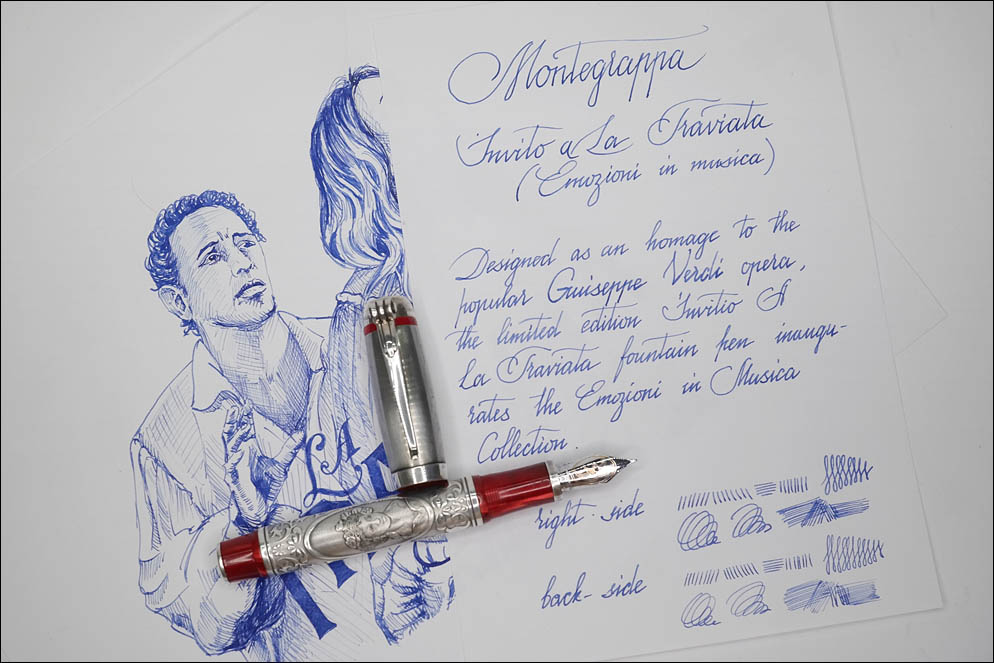 Montegrappa
Invito a La Traviata
(Emozioni in musica)
Designed as an homage to the
popular Guiseppe Verdi opera,
the limited edition Invitio A
La Traviata fountain pen inaugu-
rates the Emozioni in Musica
Collection.
right-side
back-side
LA